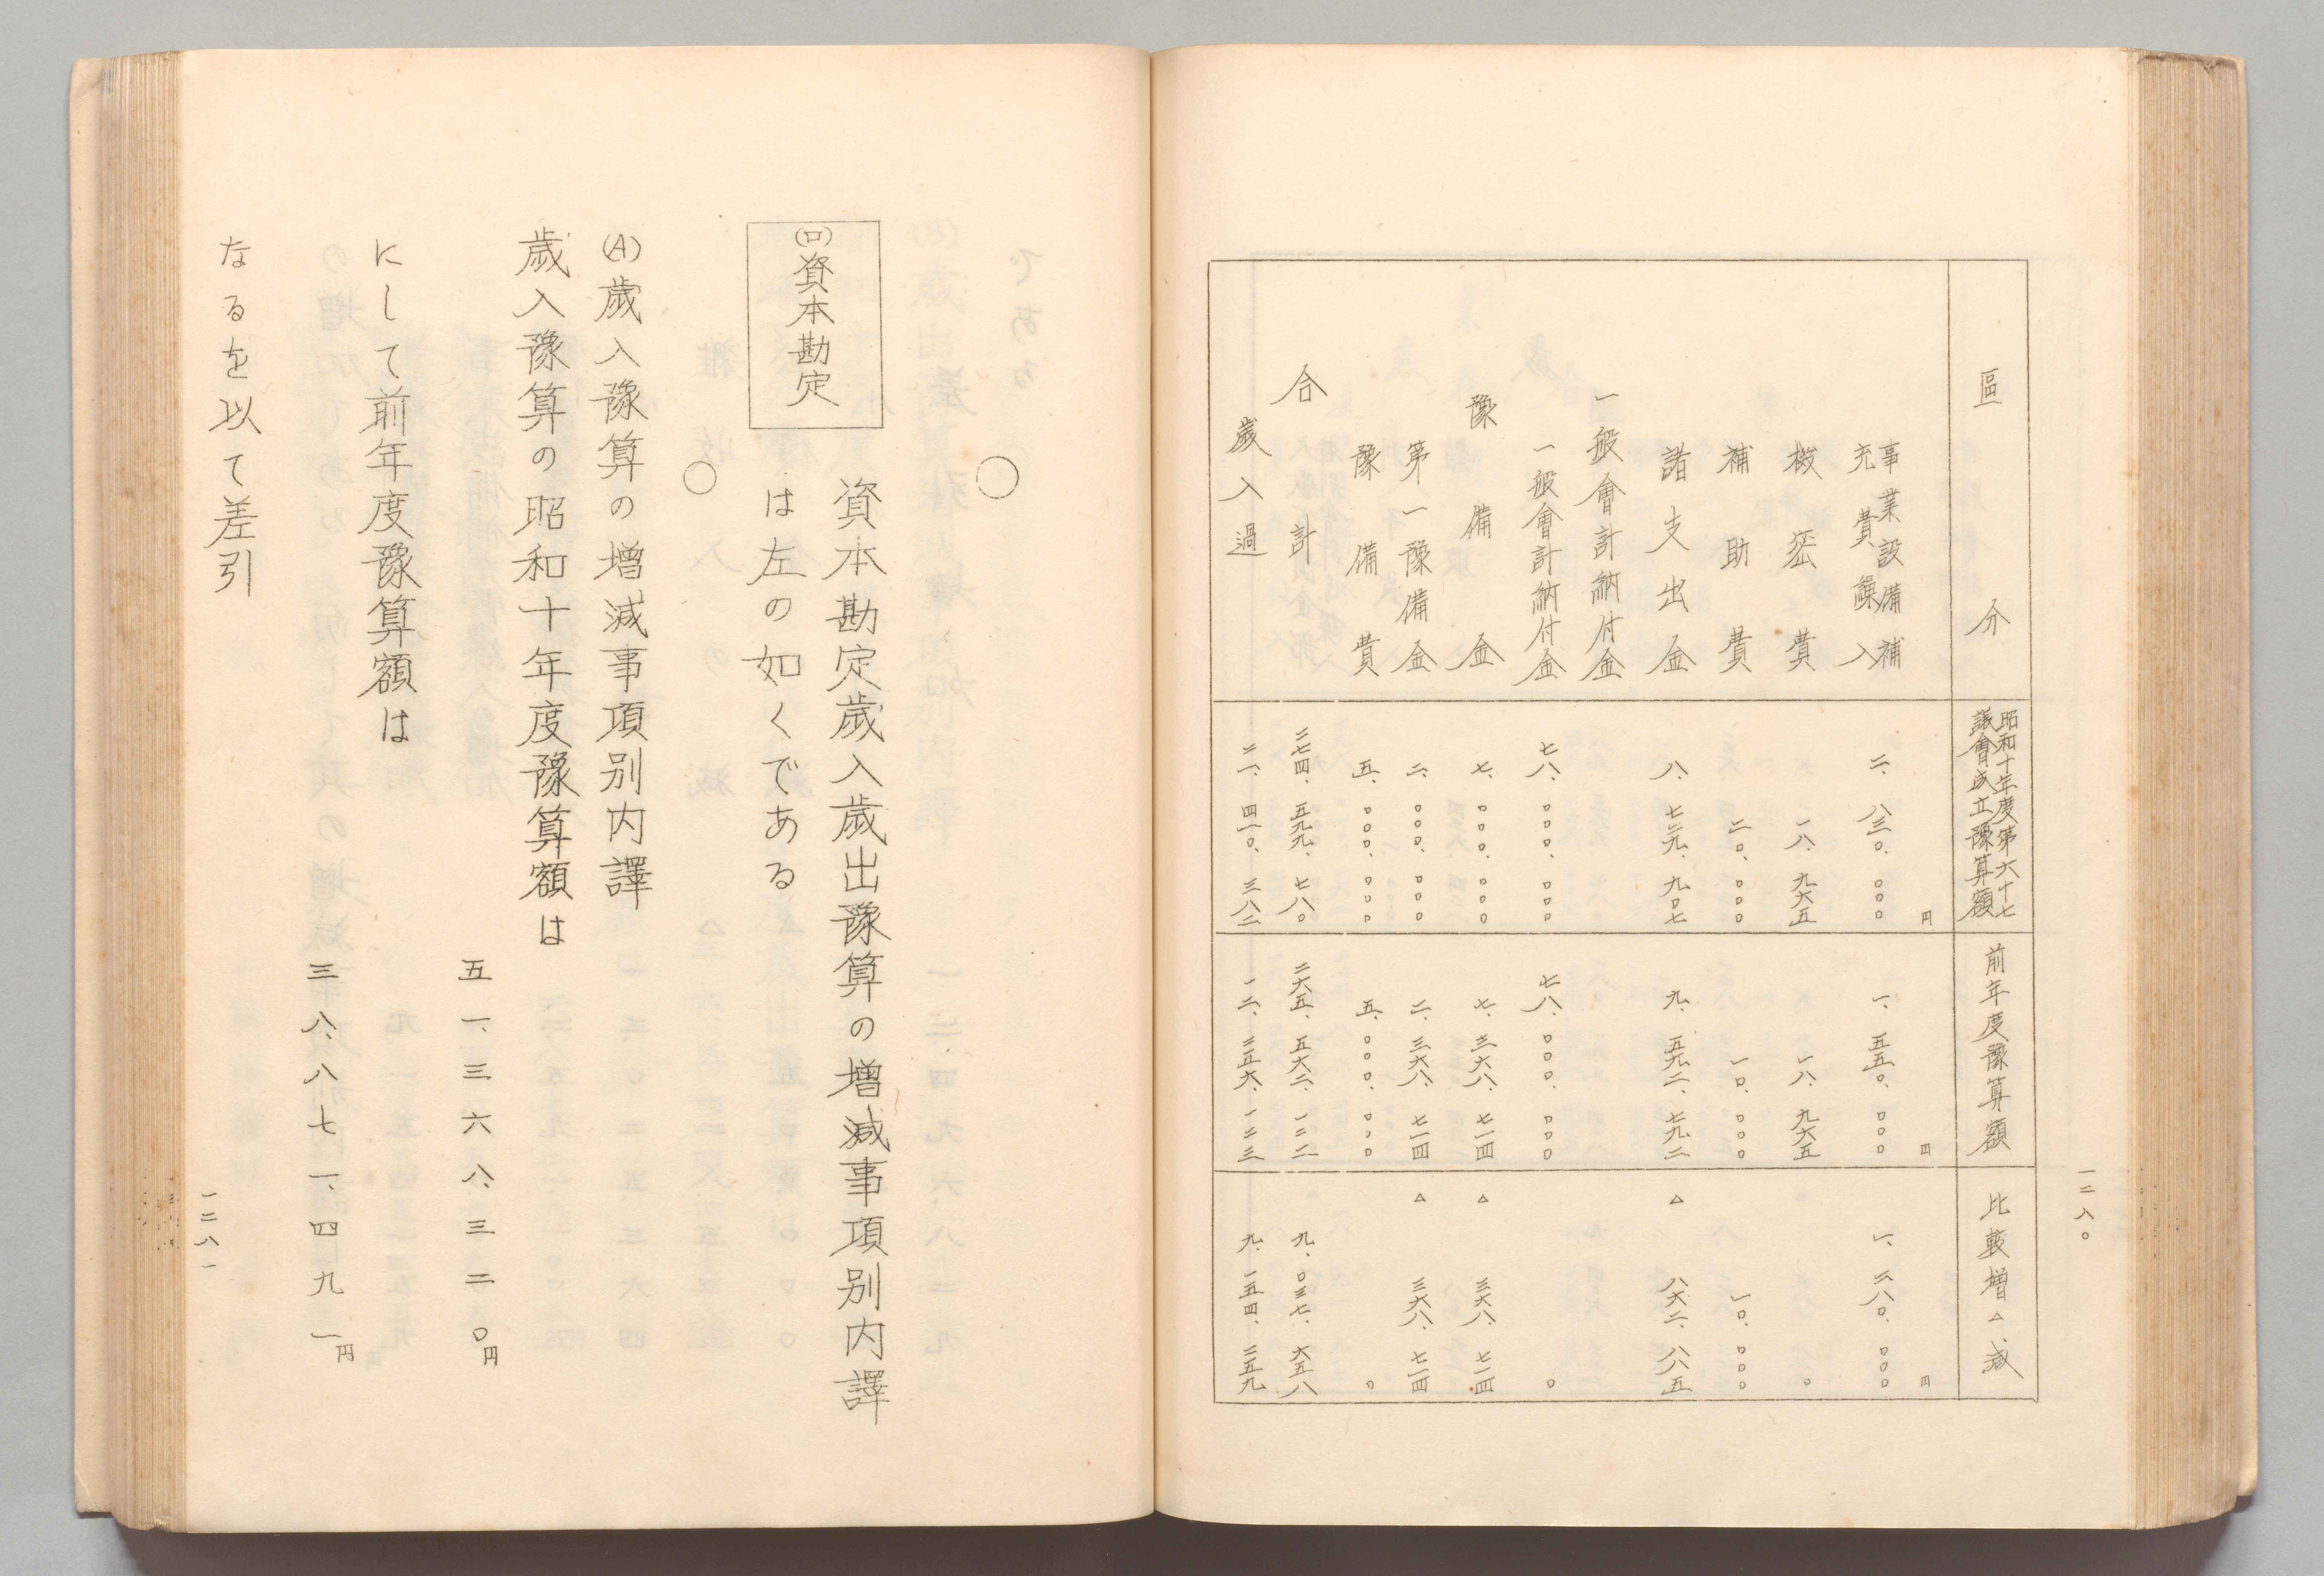 一二八〇
區分
昭和十年度第六十七
議會成立豫算額
前年度豫算額
比較増△減
円 円 円
事業設備補
充費繰入 二、八三〇、〇〇〇 一、五五〇、〇〇〇 一、二八〇、〇〇〇
機密費 一八、九六五 一八、九六五 〇
補助費 二〇、〇〇〇 一〇、〇〇〇 一〇、〇〇〇
諸支出金 八、七二九、九〇七 九、五九二、七九二 △八六二、八八五
一般會計納付金
一般會計納付金 七八、〇〇〇、〇〇〇 七八、〇〇〇、〇〇〇 〇
豫備金 七、〇〇〇、〇〇〇 七、三六八、七一四 △三六八、七一四
第一豫備金 二、〇〇〇、〇〇〇 二、三六八、七一四 △三六八、七一四
豫備費 五、〇〇〇、〇〇〇 五、〇〇〇、〇〇〇 〇
合計 二七四、五九九、七八〇 二六五、五六二、一二二 九、〇三七、六五八
歳入過 二一、四一〇、三八二 一二、二五六、一二三 九、一五四、二五九
○
資本勘定歳入歳出豫算の増減事項別内譯
は左の如くである
(ロ)資本勘定
○
(A)歳入豫算の増減事項別内譯
歳入豫算の昭和十年度豫算額は
五一、三六八、三二〇円
にして前年度豫算額は
三八、八七一、四九一円
なるを以て差引
一二八一